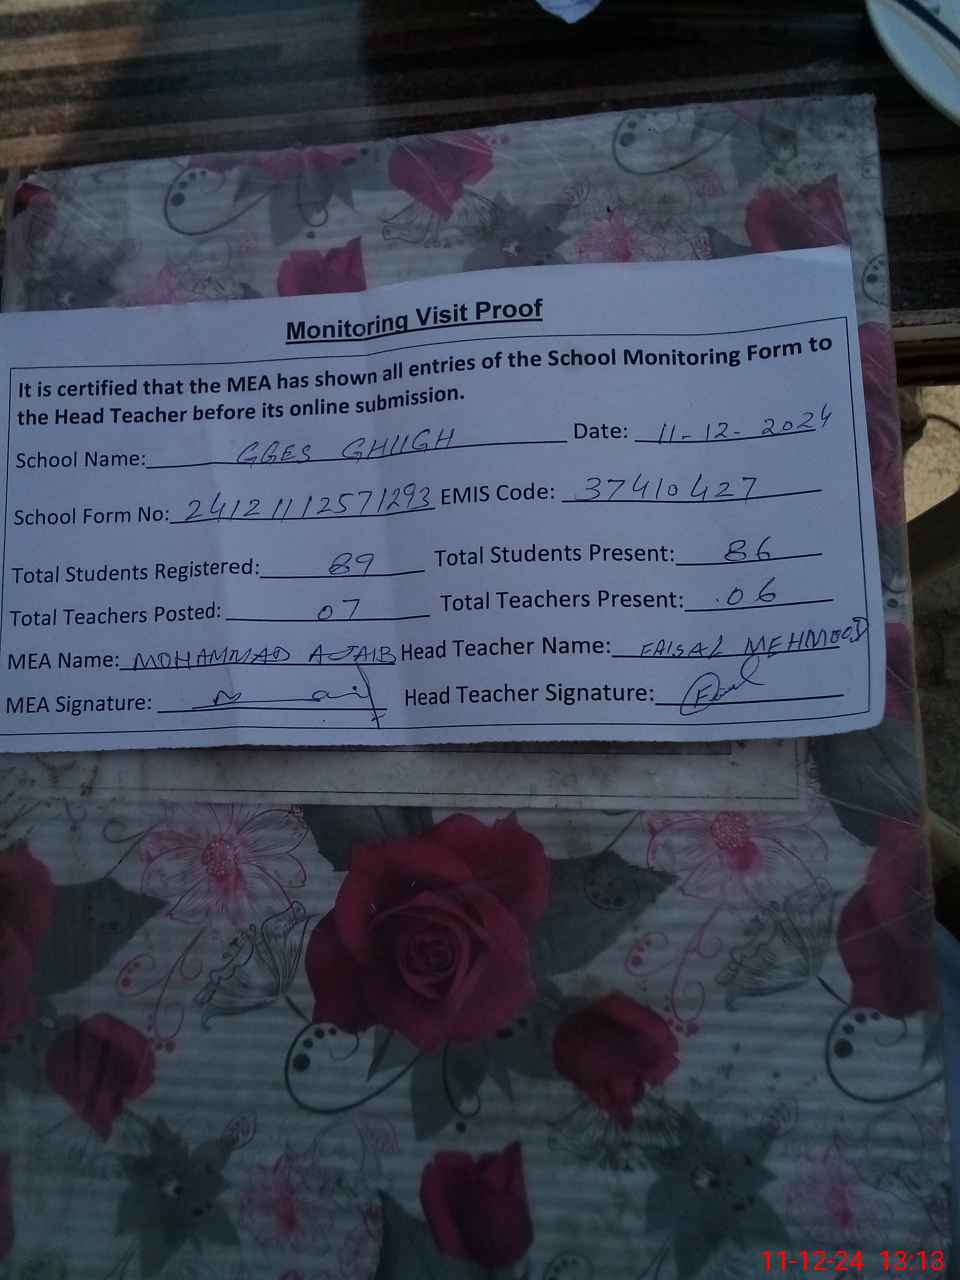 Monitoring Visit Proof
It is certified that the MEA has shown all entries of the School Monitoring Form to
the Head Teacher before its online submission.
School Name: GGES GHIIGH Date: 11-12-2024
School Form No: 24121112571293 EMIS Code: 37410427
Total Students Registered: 89 Total Students Present: 86
Total Teachers Posted: 07 Total Teachers Present: 06
MEA Name: MOHAMMAD AJAIB Head Teacher Name: FAISAL MEHMOOD
MEA Signature: Head Teacher Signature:
11-12-24 13:13